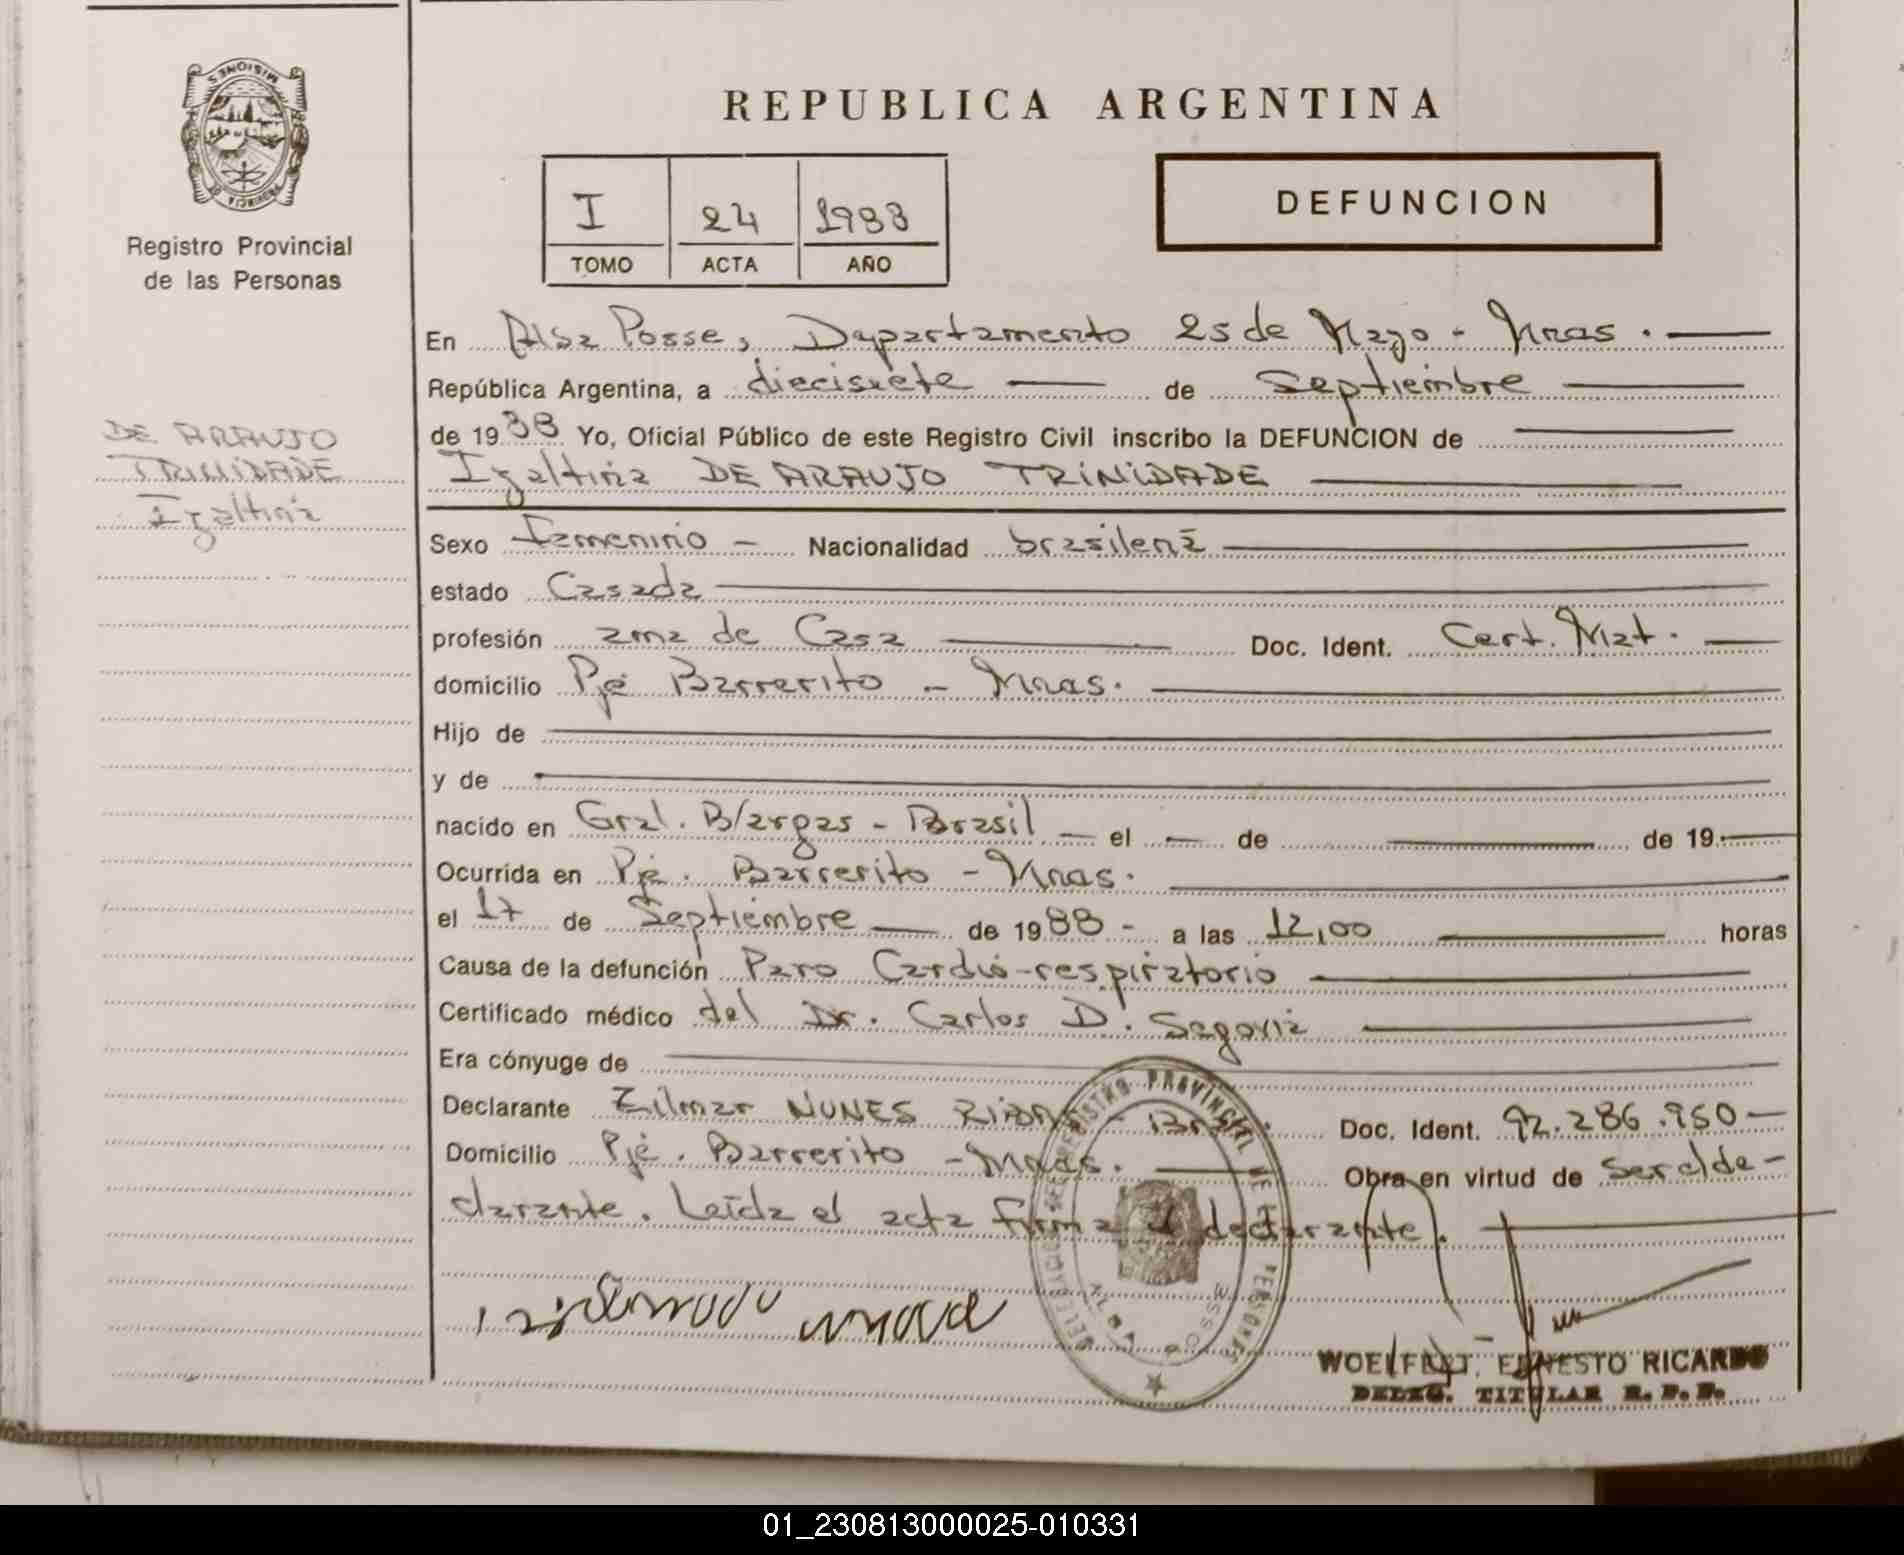 MISIONES
PROVINCIA DE
Registro Provincial
de las Personas
REPUBLICA ARGENTINA
I 24 1988
TOMO ACTA AÑO
DEFUNCION
En Alba Posse, Departamento 25 de Mayo - Mnas.
República Argentina, a diecisiete de Septiembre
de 1988 Yo, Oficial Público de este Registro Civil inscribo la DEFUNCION de
Igaltina DE ARAUJO TRINIDADE
DE ARAUJO
TRINIDADE
Igaltina
Sexo Femenino - Nacionalidad brasileña
estado Casada
profesión ama de Casa Doc. Ident. Cert. Mat.
domicilio Pje Barrerito - Mnas.
Hijo de
y de
nacido en Gral. B/argas - Brasil el de de 19
Ocurrida en Pje. Barrerito - Mnas.
el 17 de Septiembre de 1988 - a las 12,00 horas
Causa de la defunción Paro Cardio-respiratorio
Certificado médico del Dr. Carlos D. Segovia
Era cónyuge de
Declarante Zilmar NUNES Doc. Ident. 92.286.950
Domicilio Pje. Barrerito - Mnas. Obra en virtud de Ser el de-
clarante. Leída el acta firma el declarante.
REGISTRO PROVINCIAL DE PERSONAS
ALBA POSSE
WOELFERT, ERNESTO RICARDO
DELEG. TITULAR R. P. P.
01_230813000025-010331